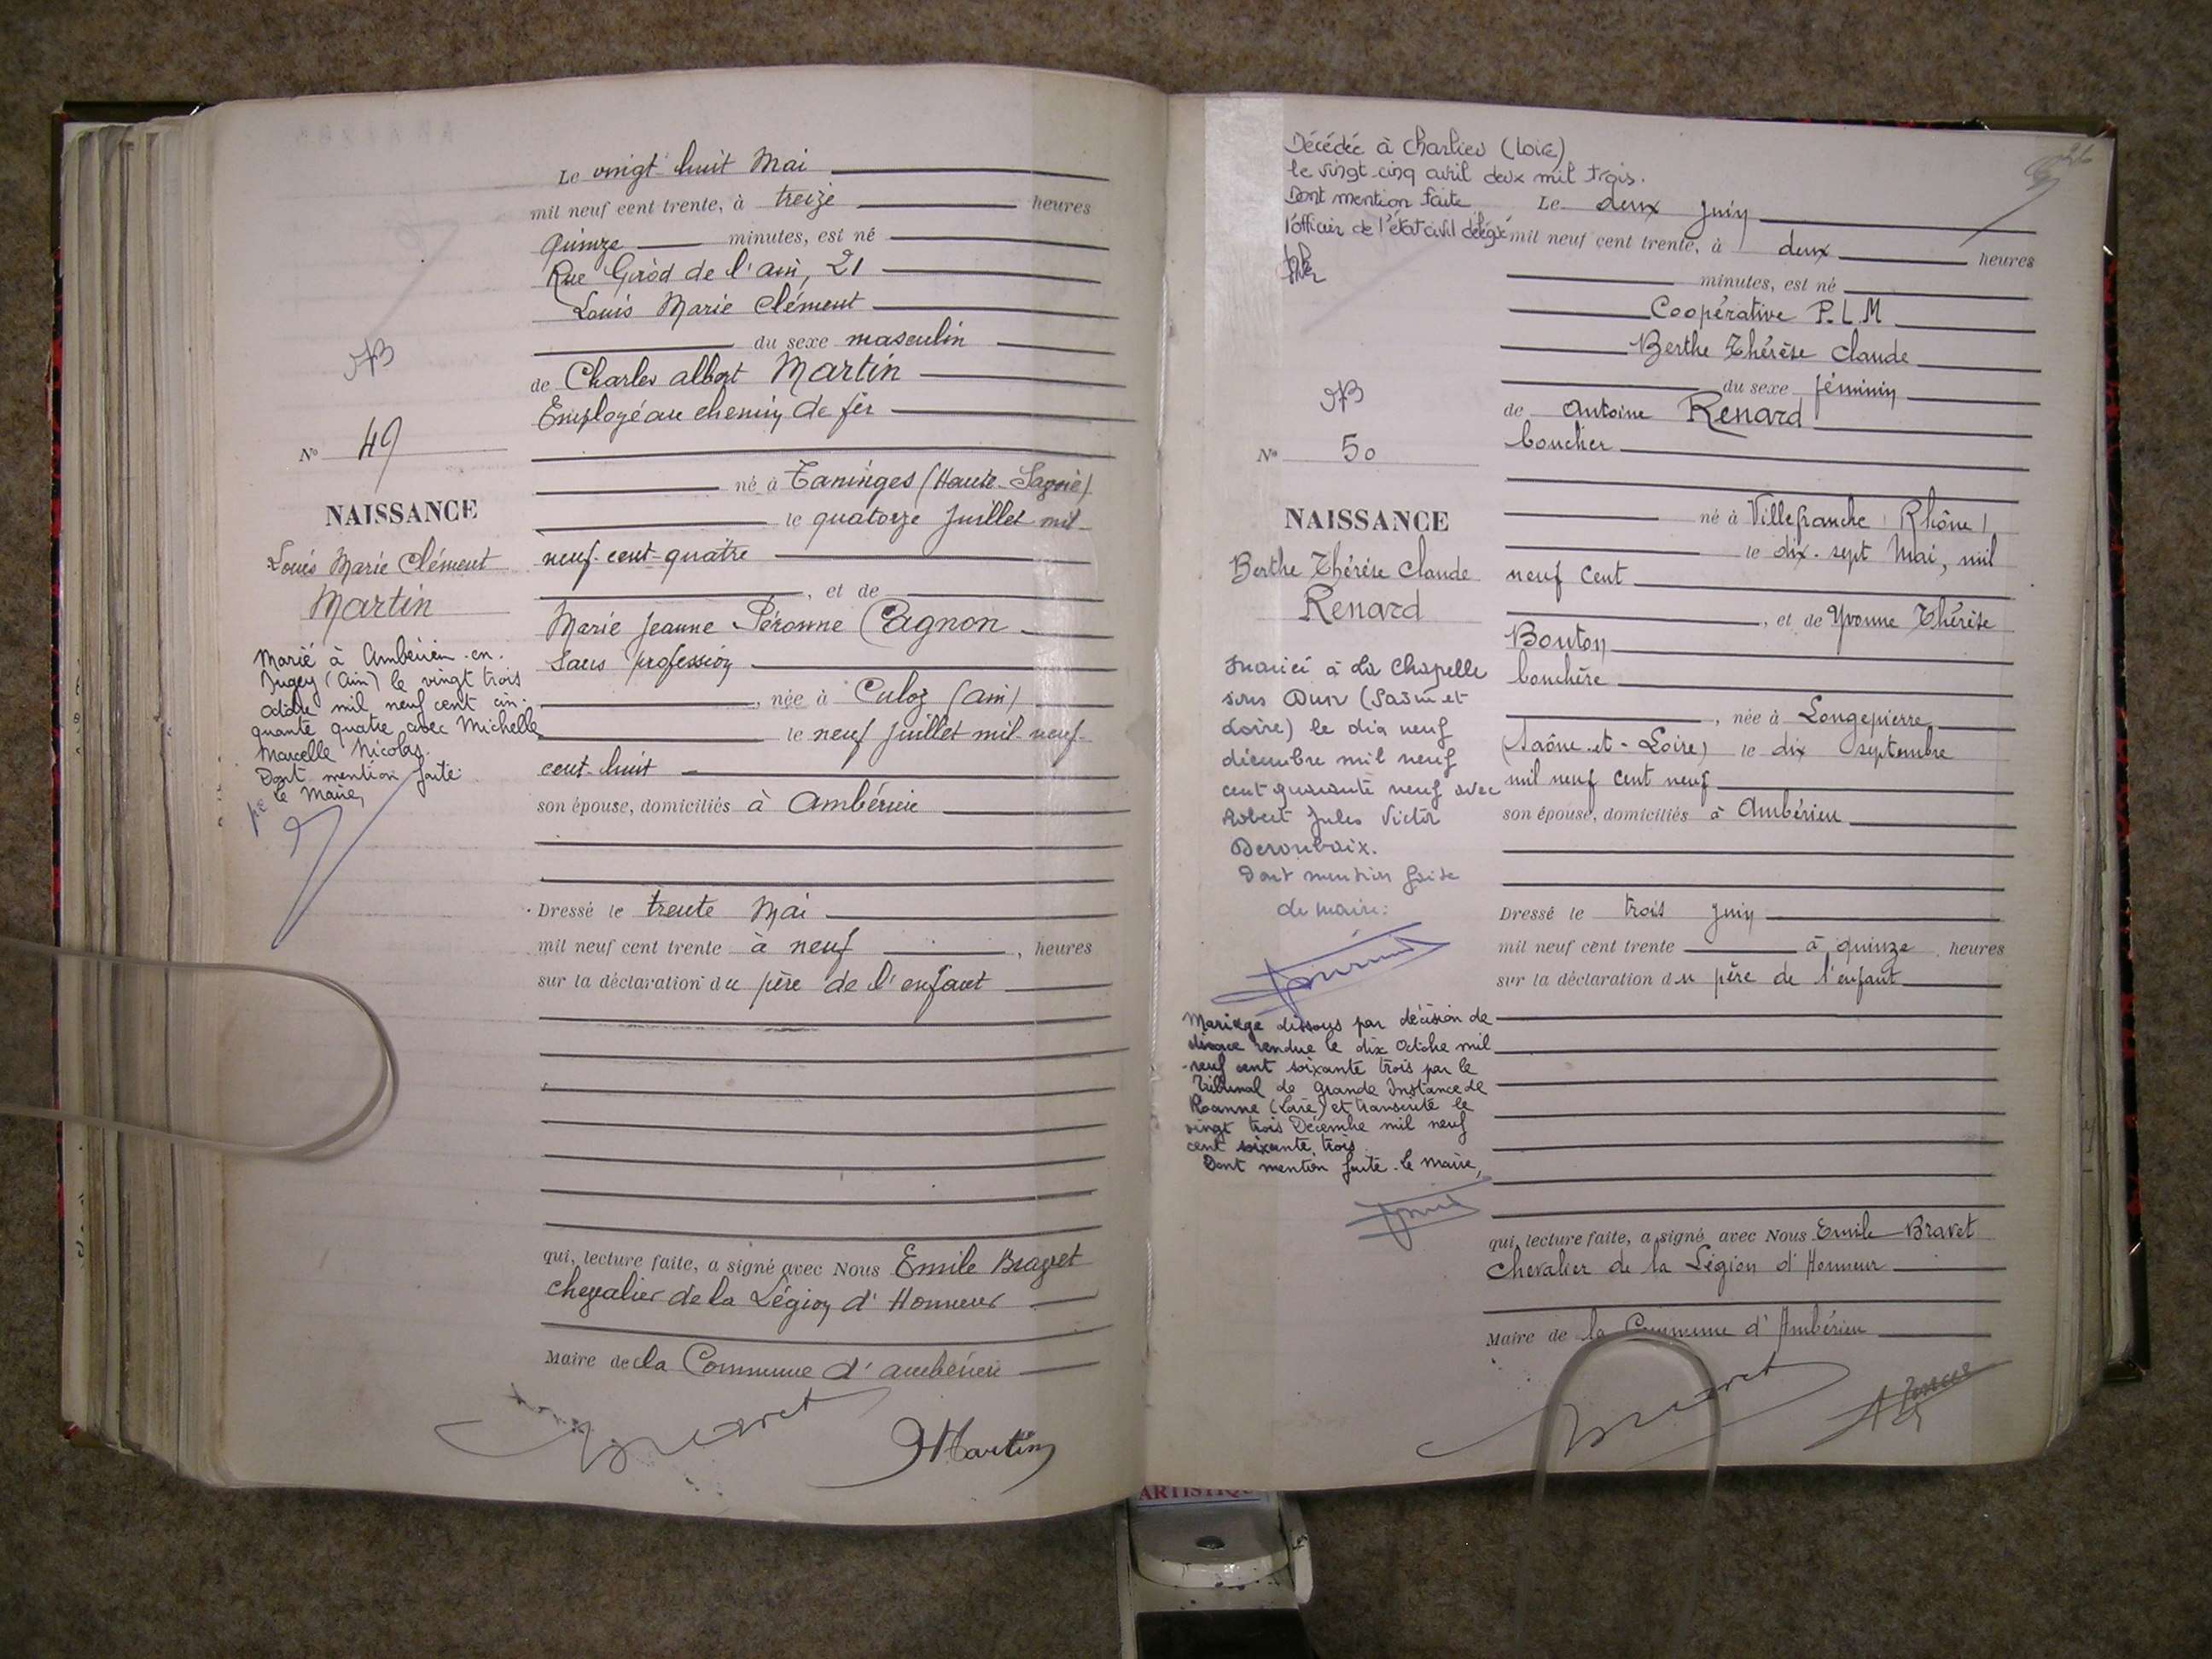 Le vingt huit Mai
mil neuf cent trente, à treize heures
quinze minutes, est né
Rue Girod de l'ain, 21
Louis Marie Clément
du sexe masculin
de Charles albert Martin
Employé au chemin de fer
né à Taninges (Haute-Savoie)
le quatorze Juillet mil
neuf cent quatre
, et de
Marie Jeanne Péronne Cagnon
Sans profession
, née à Culoz (ain)
le neuf Juillet mil neuf
cent huit
son épouse, domiciliés à Ambérieu
Dressé le trente Mai
mil neuf cent trente à neuf , heures
sur la déclaration du père de l'enfant
qui, lecture faite, a signé avec Nous Emile Bravet
chevalier de la Légion d'Honneur
Maire de la Commune d'ambérieu
Bravet
Martin
N° 49
NAISSANCE
Louis Marie Clément
Martin
Marié à Ambérieu-en-
Bugey (Ain) le vingt trois
octobre mil neuf cent cin-
quante quatre avec Michelle
Marcelle Nicolas.
Dont mention faite
Le Maire,
Décédée à Charlieu (Loire)
le vingt cinq avril deux mil trois.
Dont mention faite
l'officier de l'état civil délégué
Le deux Juin
mil neuf cent trente, à deux heures
minutes, est né
Coopérative P.L.M
Berthe Thérèse Claude
du sexe féminin
de Antoine Renard
boucher
né à Villefranche (Rhône)
le dix-sept Mai, mil
neuf cent
, et de Yvonne Thérèse
Bouton
bouchère
, née à Longepierre
(Saône-et-Loire) le dix septembre
mil neuf cent neuf
son épouse, domiciliés à Ambérieu
Dressé le trois Juin
mil neuf cent trente à quinze heures
sur la déclaration du père de l'enfant
qui, lecture faite, a signé avec Nous Emile Bravet
Chevalier de la Légion d'Honneur
Maire de la Commune d'Ambérieu
Bravet
N° 50
NAISSANCE
Berthe Thérèse Claude
Renard
Mariée à La Chapelle
sous Dun (Saône et
Loire) le dix neuf
décembre mil neuf
cent quarante neuf avec
Robert Jules Victor
Deroubaix.
Dont mention faite
Le maire:
Mariage dissous par décision de
divorce rendue le dix Octobre mil
neuf cent soixante trois par le
Tribunal de Grande Instance de
Roanne (Loire) et transcrite le
vingt trois Décembre mil neuf
cent soixante trois
Dont mention faite. Le Maire,
ARTISTIQUE